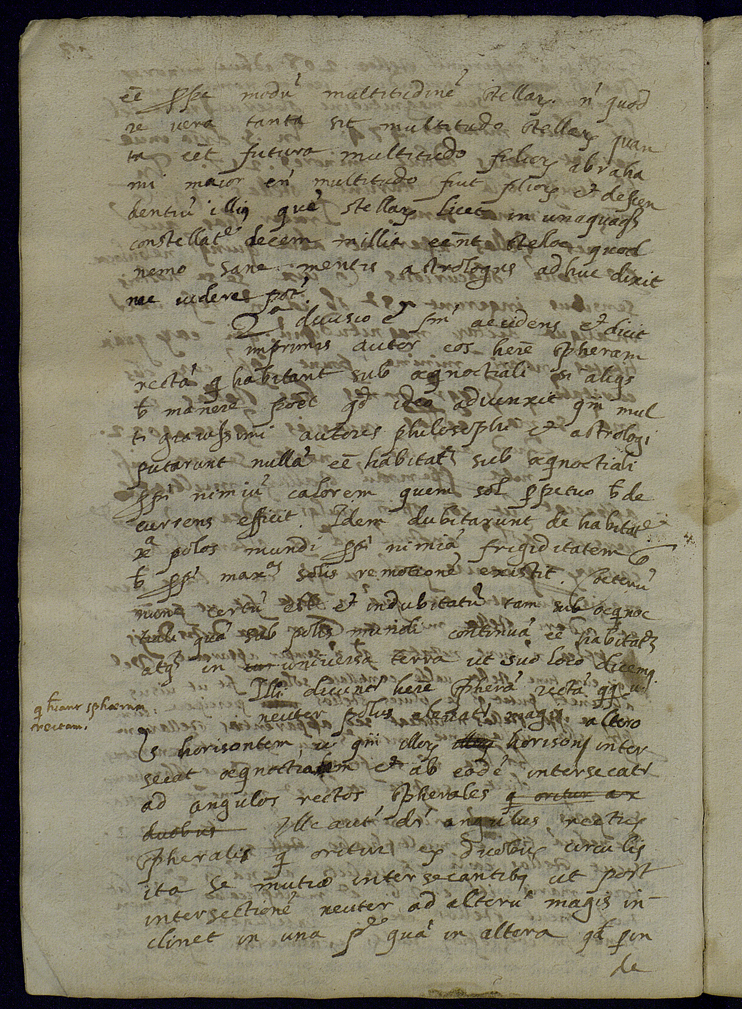 eē p̄ͥpe modū multitudinē stellaꝝ. n̄ quod
re vera tanta sit multitudo stellaꝝ quan
ta eēt futura multitudo filioꝝ abraha
mi maior en̄ multitudo fuit filioꝝ et descen
dentiū illiꝰ quā stellaꝝ licet in unaquaqꝫ
constellatē decem millia eēnt stellae quod
nemo sane mentis astrologus adhuc dixit
nec videre pōt.
2ª divisio ē sm̄ accidens et dicit
imprimis autor eos hēre spheram
rectā q̄ habitant sub aeqnoctiali si aliqs
manere pōt qd ideo adiunxit qm̄ mul
ti gravissimi autores philosophi et astrologi
putarunt nullā eē habitatē sub aeqnoctiali
nimiū calorem quem sol ppetuo
currens efficit. Idem dubitarunt de habitatē
polos mundi nimiā frigiditatem
maxā solis remotionē existit. Ceterū
nunc certū est et indubitatū tam sub aeqnoc
tiali quā sub polis mundi continuā eē habitatē
atqꝫ in universa terra ut suo loco dicemꝰ.
Illi dicunt hēre spherā rectā
q̄ hēant sphaeram
rectam.
neuter polus elevatꝰ magis altero
horisontem, qm̄ illoꝝ horison inter
secat aeqnoctialem et ab eodē intersecatr̄
ad angulos rectos spherales q̄ oritur ex
duobus Ille autē dr̄ angulus rectus
spheralis q̄ oritur ex duobus circulis
ita se mutuo intersecantibꝫ ut post
intersectionē neuter ad alterū magis in-
clinet in una p̄te quā in altera qd̄ pin
de